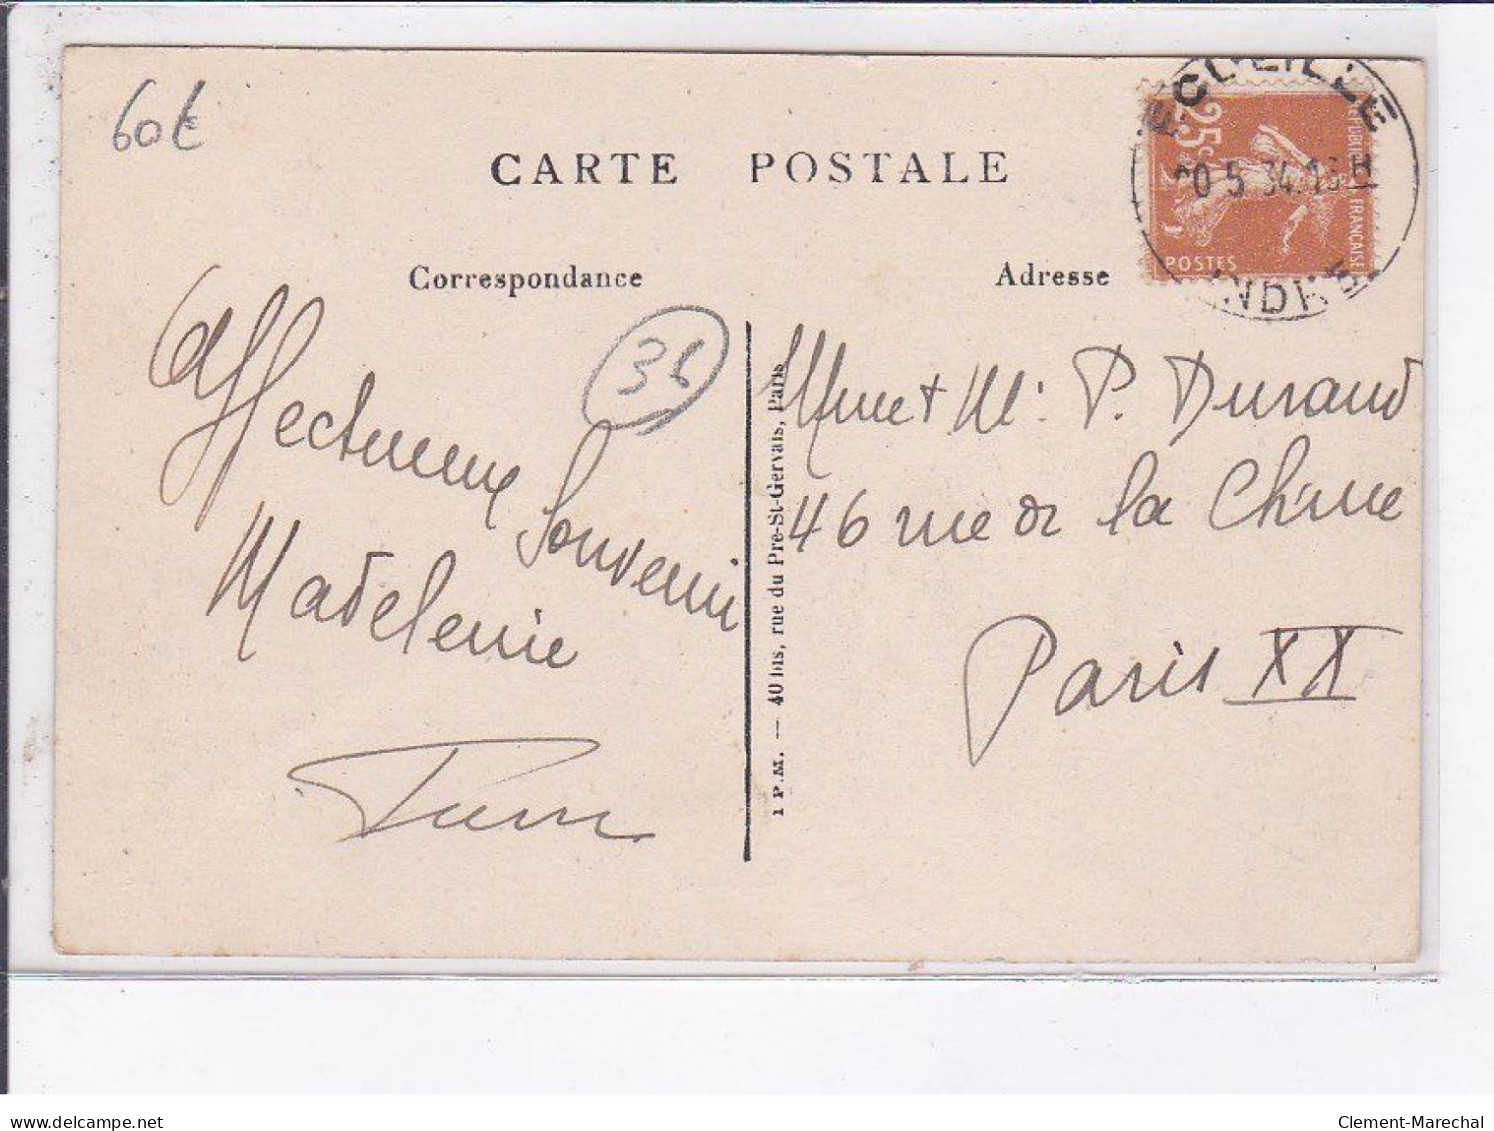 60€
CARTE POSTALE
Correspondance
Adresse
ECUEILLE
5 34
INDRE
25c
REPUBLIQUE FRANCAISE
POSTES
36
Affectueux Souvenir
Madeleine
1 P.M. — 40 bis, rue du Pré-St-Gervais, Paris
Mme et Mr P. Durand
46 rue de la Chine
Paris XX
delcampe.net
Clement-Marechal